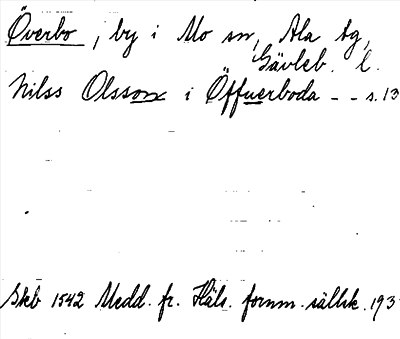 Överbo, by i Mo sn, Ala tg,
Gävleb. l.
Nilss Olsson i Öffuerboda - - s. 13
Skb 1542 Medd. fr. Häls. fornm. sällsk. 193